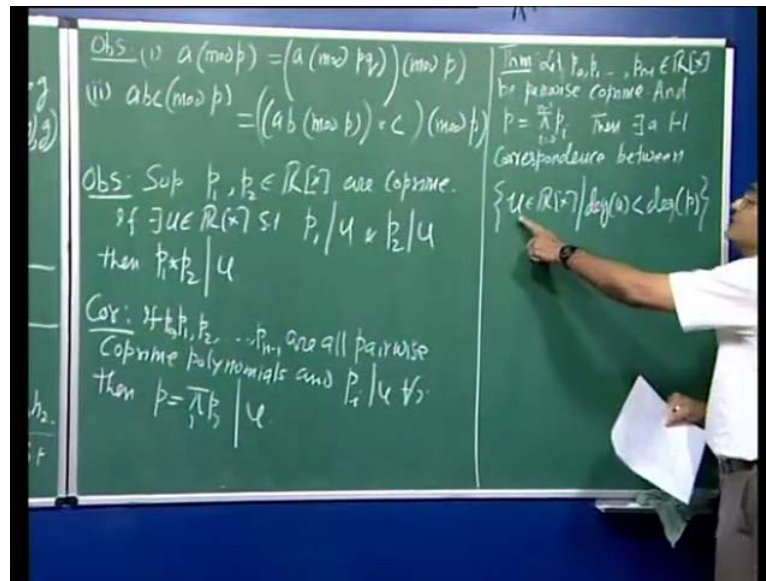 Obs: (i) a (mod p) = (a (mod pq)) (mod p)
(ii) abc (mod p)
= ((ab (mod p)) * c) (mod p)
Obs: Sup p₁, p₂ ∈ ℝ[x] are coprime.
If ∃ u ∈ ℝ[x] s.t p₁ | u & p₂ | u
then p₁ * p₂ | u
Cor: If p₀, p₁, p₂, ..., pₙ₋₁, are all pairwise
Coprime polynomials and pᵢ | u ∀ i
then p = π pᵢ | u.
Thm: Let p₀, p₁, ..., pₙ₋₁ ∈ ℝ[x]
be pairwise coprime. And
p = π pᵢ Then ∃ a 1-1
Correspondence between
{u ∈ ℝ[x] | deg(u) < deg(p)}